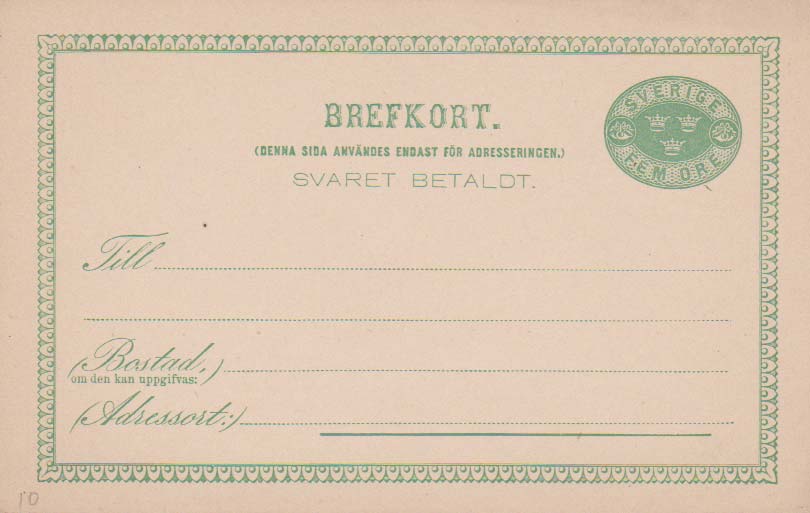 SVERIGE
FEM ÖRE
BREFKORT.
(DENNA SIDA ANVÄNDES ENDAST FÖR ADRESSERINGEN.)
SVARET BETALDT.
Till
(Bostad,)
om den kan uppgifvas:
(Adressort:)
10